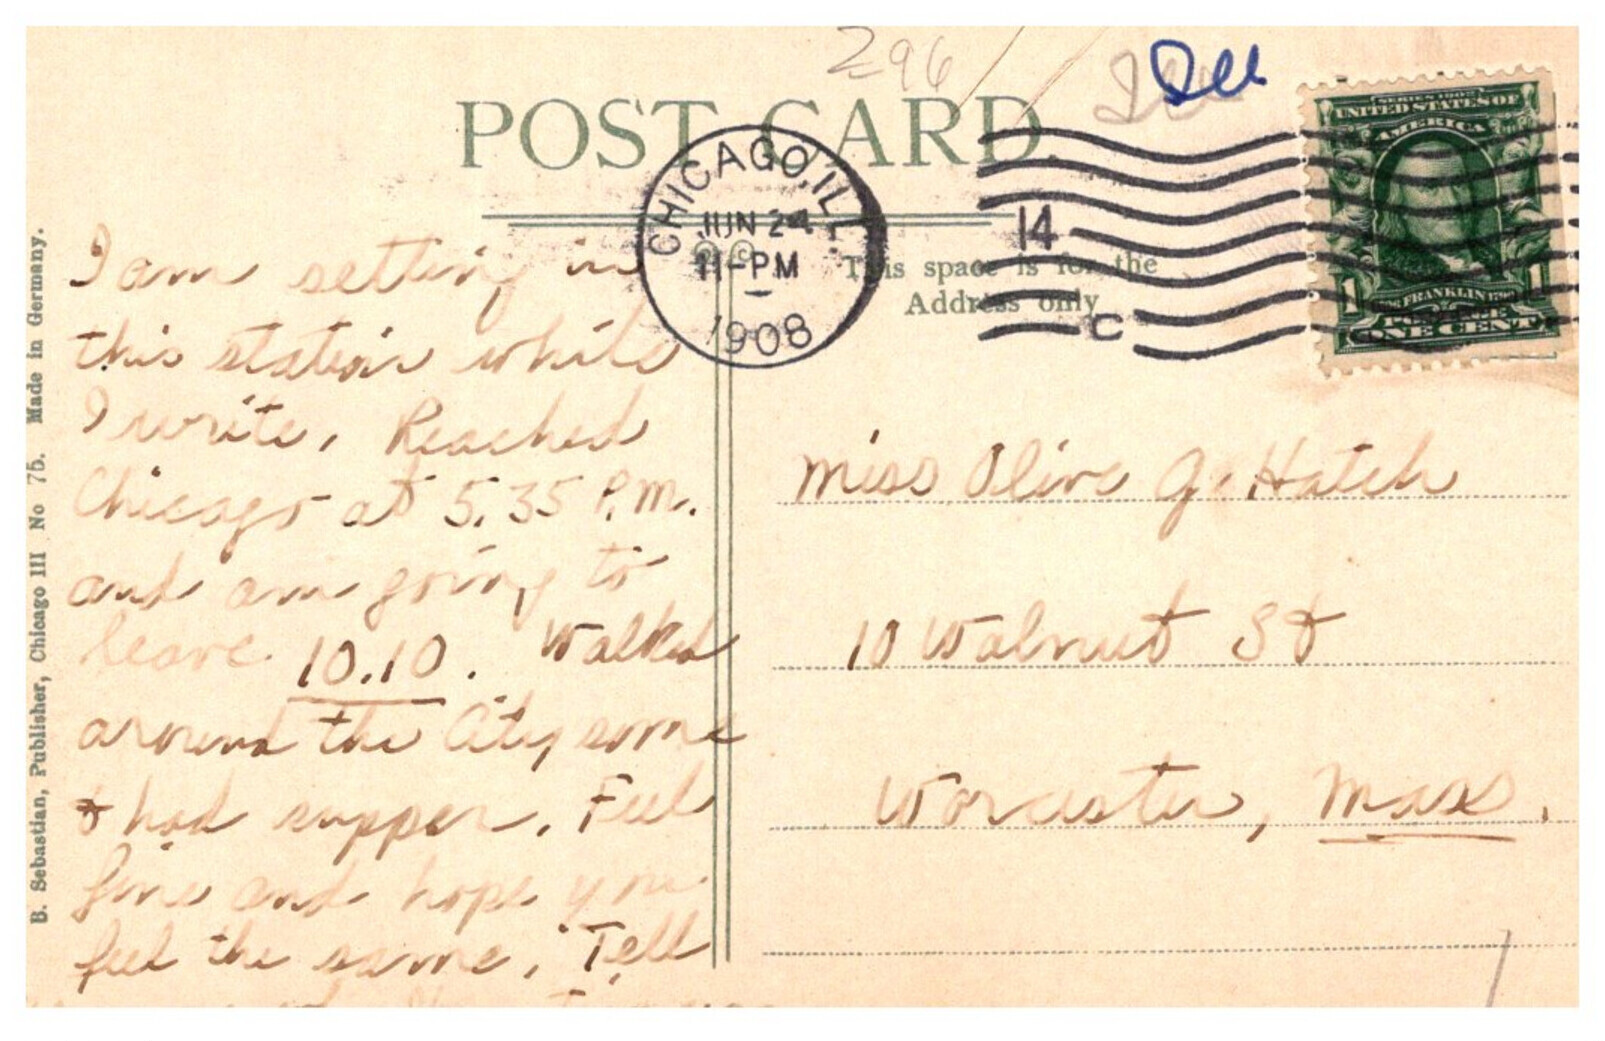 296
Ill
POST CARD.
CHICAGO, ILL.
JUN 24
11-PM
1908
14
C
SERIES 1902
UNITED STATES OF
AMERICA
1 FRANKLIN 1
ONE CENT
This space is for the
Address only
B. Sebastian, Publisher, Chicago III No 75. Made in Germany.
I am setting in
this station while
I write. Reached
Chicago at 5.35 P.M.
and am going to
leave 10.10. Walked
around the City some
& had supper. Feel
fine and hope you
feel the same. Tell
Miss Olive G. Hatch
10 Walnut St
Worcester, Mass.